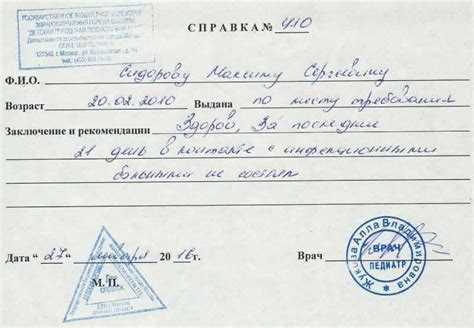 СПРАВКА № 410
Ф.И.О. Сидорову Максиму Сергеевичу
Возраст 20.02.2010 Выдана по месту требования
Заключение и рекомендации Здоров, За последние
21 день в контакте с инфекционными
больными не состоял
Дата "27" января 2016г. Врач
М. П.
Жукова Алла Владимировна
ВРАЧ
ПЕДИАТР